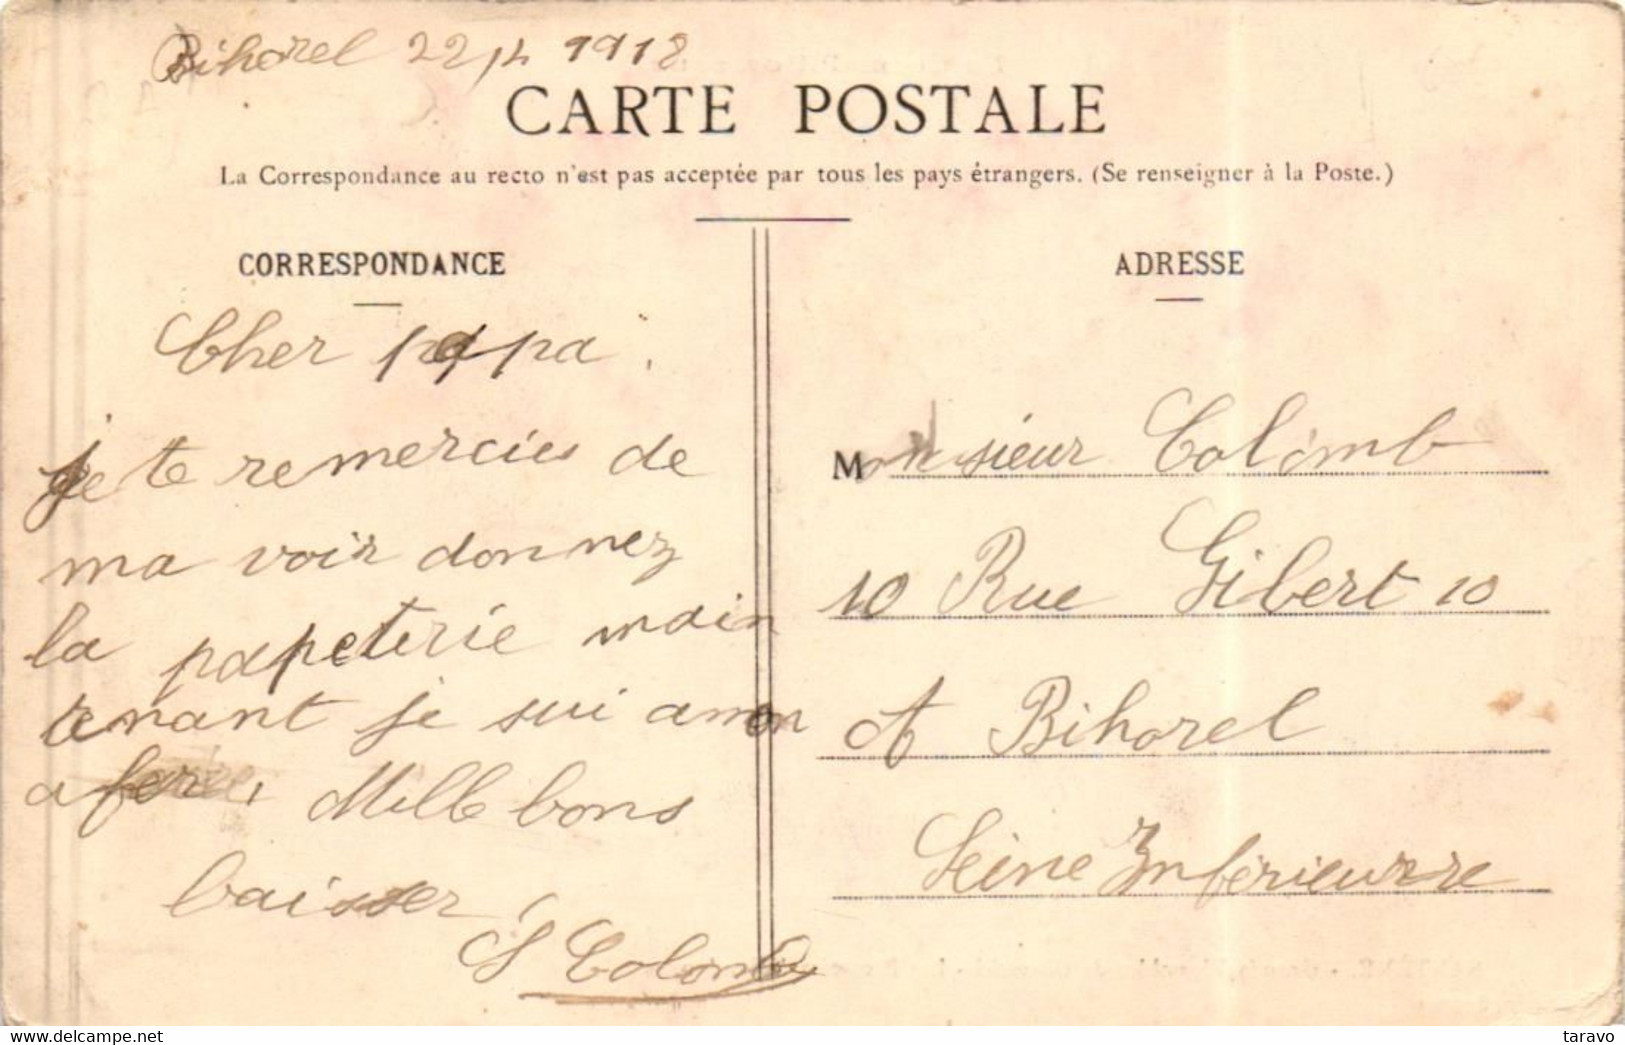 Bihorel 22/4 1918
CARTE POSTALE
La Correspondance au recto n'est pas acceptée par tous les pays étrangers. (Se renseigner à la Poste.)
CORRESPONDANCE
Cher papa.
je te remercies de
ma voir donnez
la papeterie main
tenant je sui amon
afer, Mille bons
baisser,
S Colomb
ADRESSE
Monsieur Colomb
10 Rue Gibert 10
A Bihorel
Seine Inférieurre
www.delcampe.net
taravo